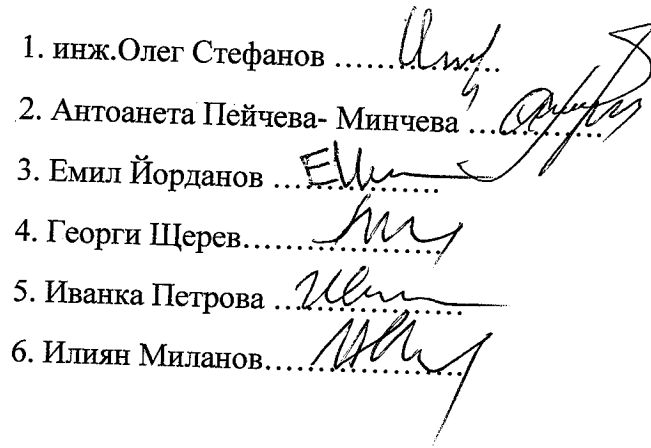 1. инж.Олег Стефанов ..................
2. Антоанета Пейчева- Минчева ................
3. Емил Йорданов ....................
4. Георги Щерев........................
5. Иванка Петрова .......................
6. Илиян Миланов........................